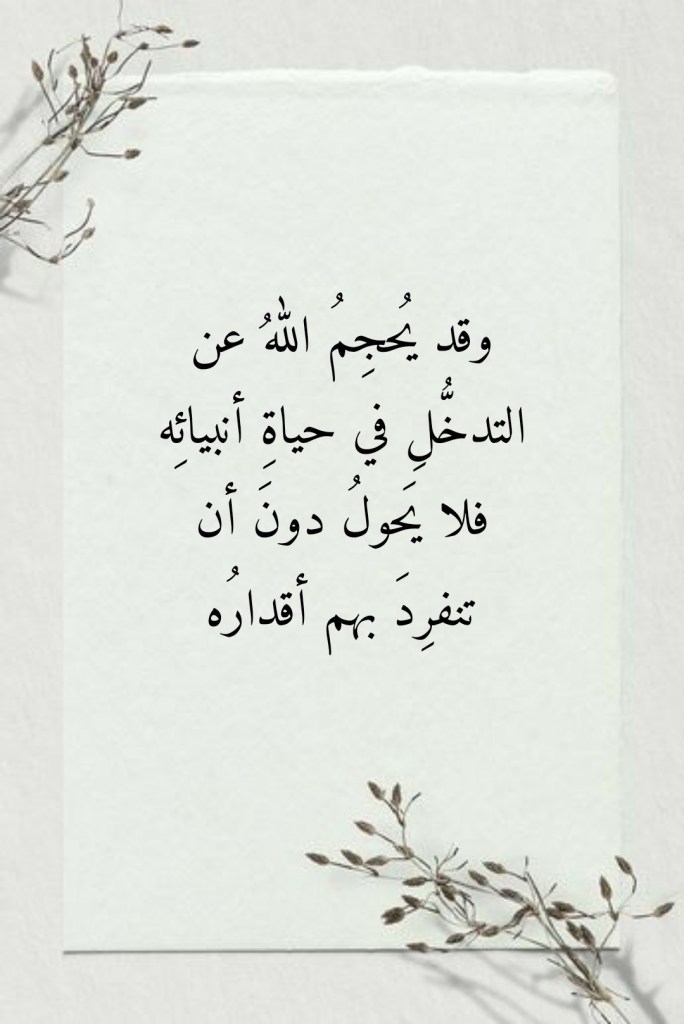 وقد يُحجِمُ اللهُ عن
التدخُّلِ في حياةِ أنبيائِه
فلا يَحولُ دونَ أن
تنفرِدَ بهم أقدارُه